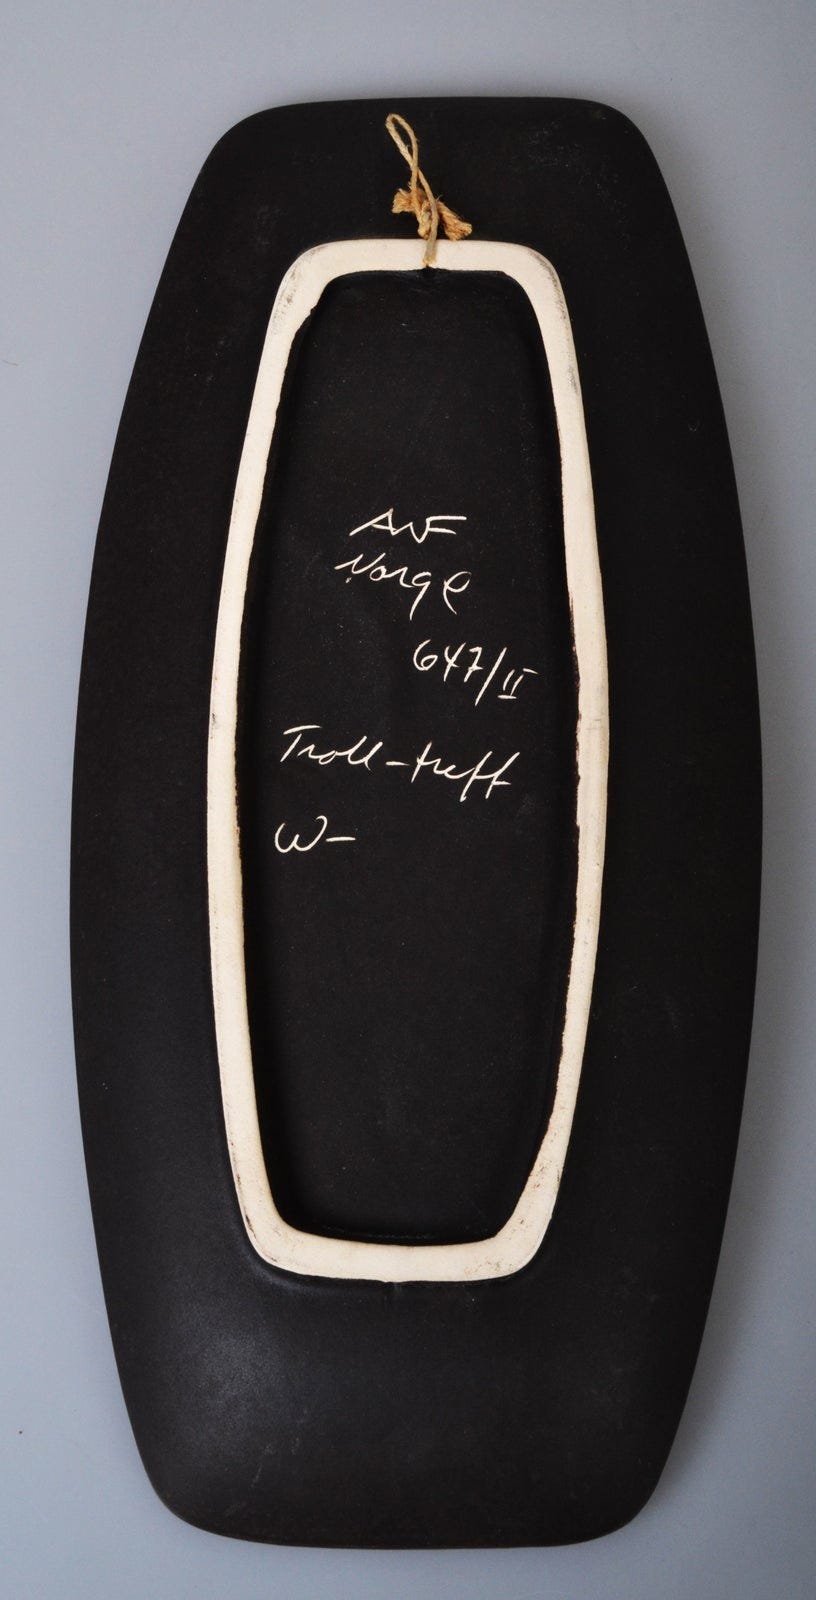 AWF
Norge
647/II
Troll-treff
W-